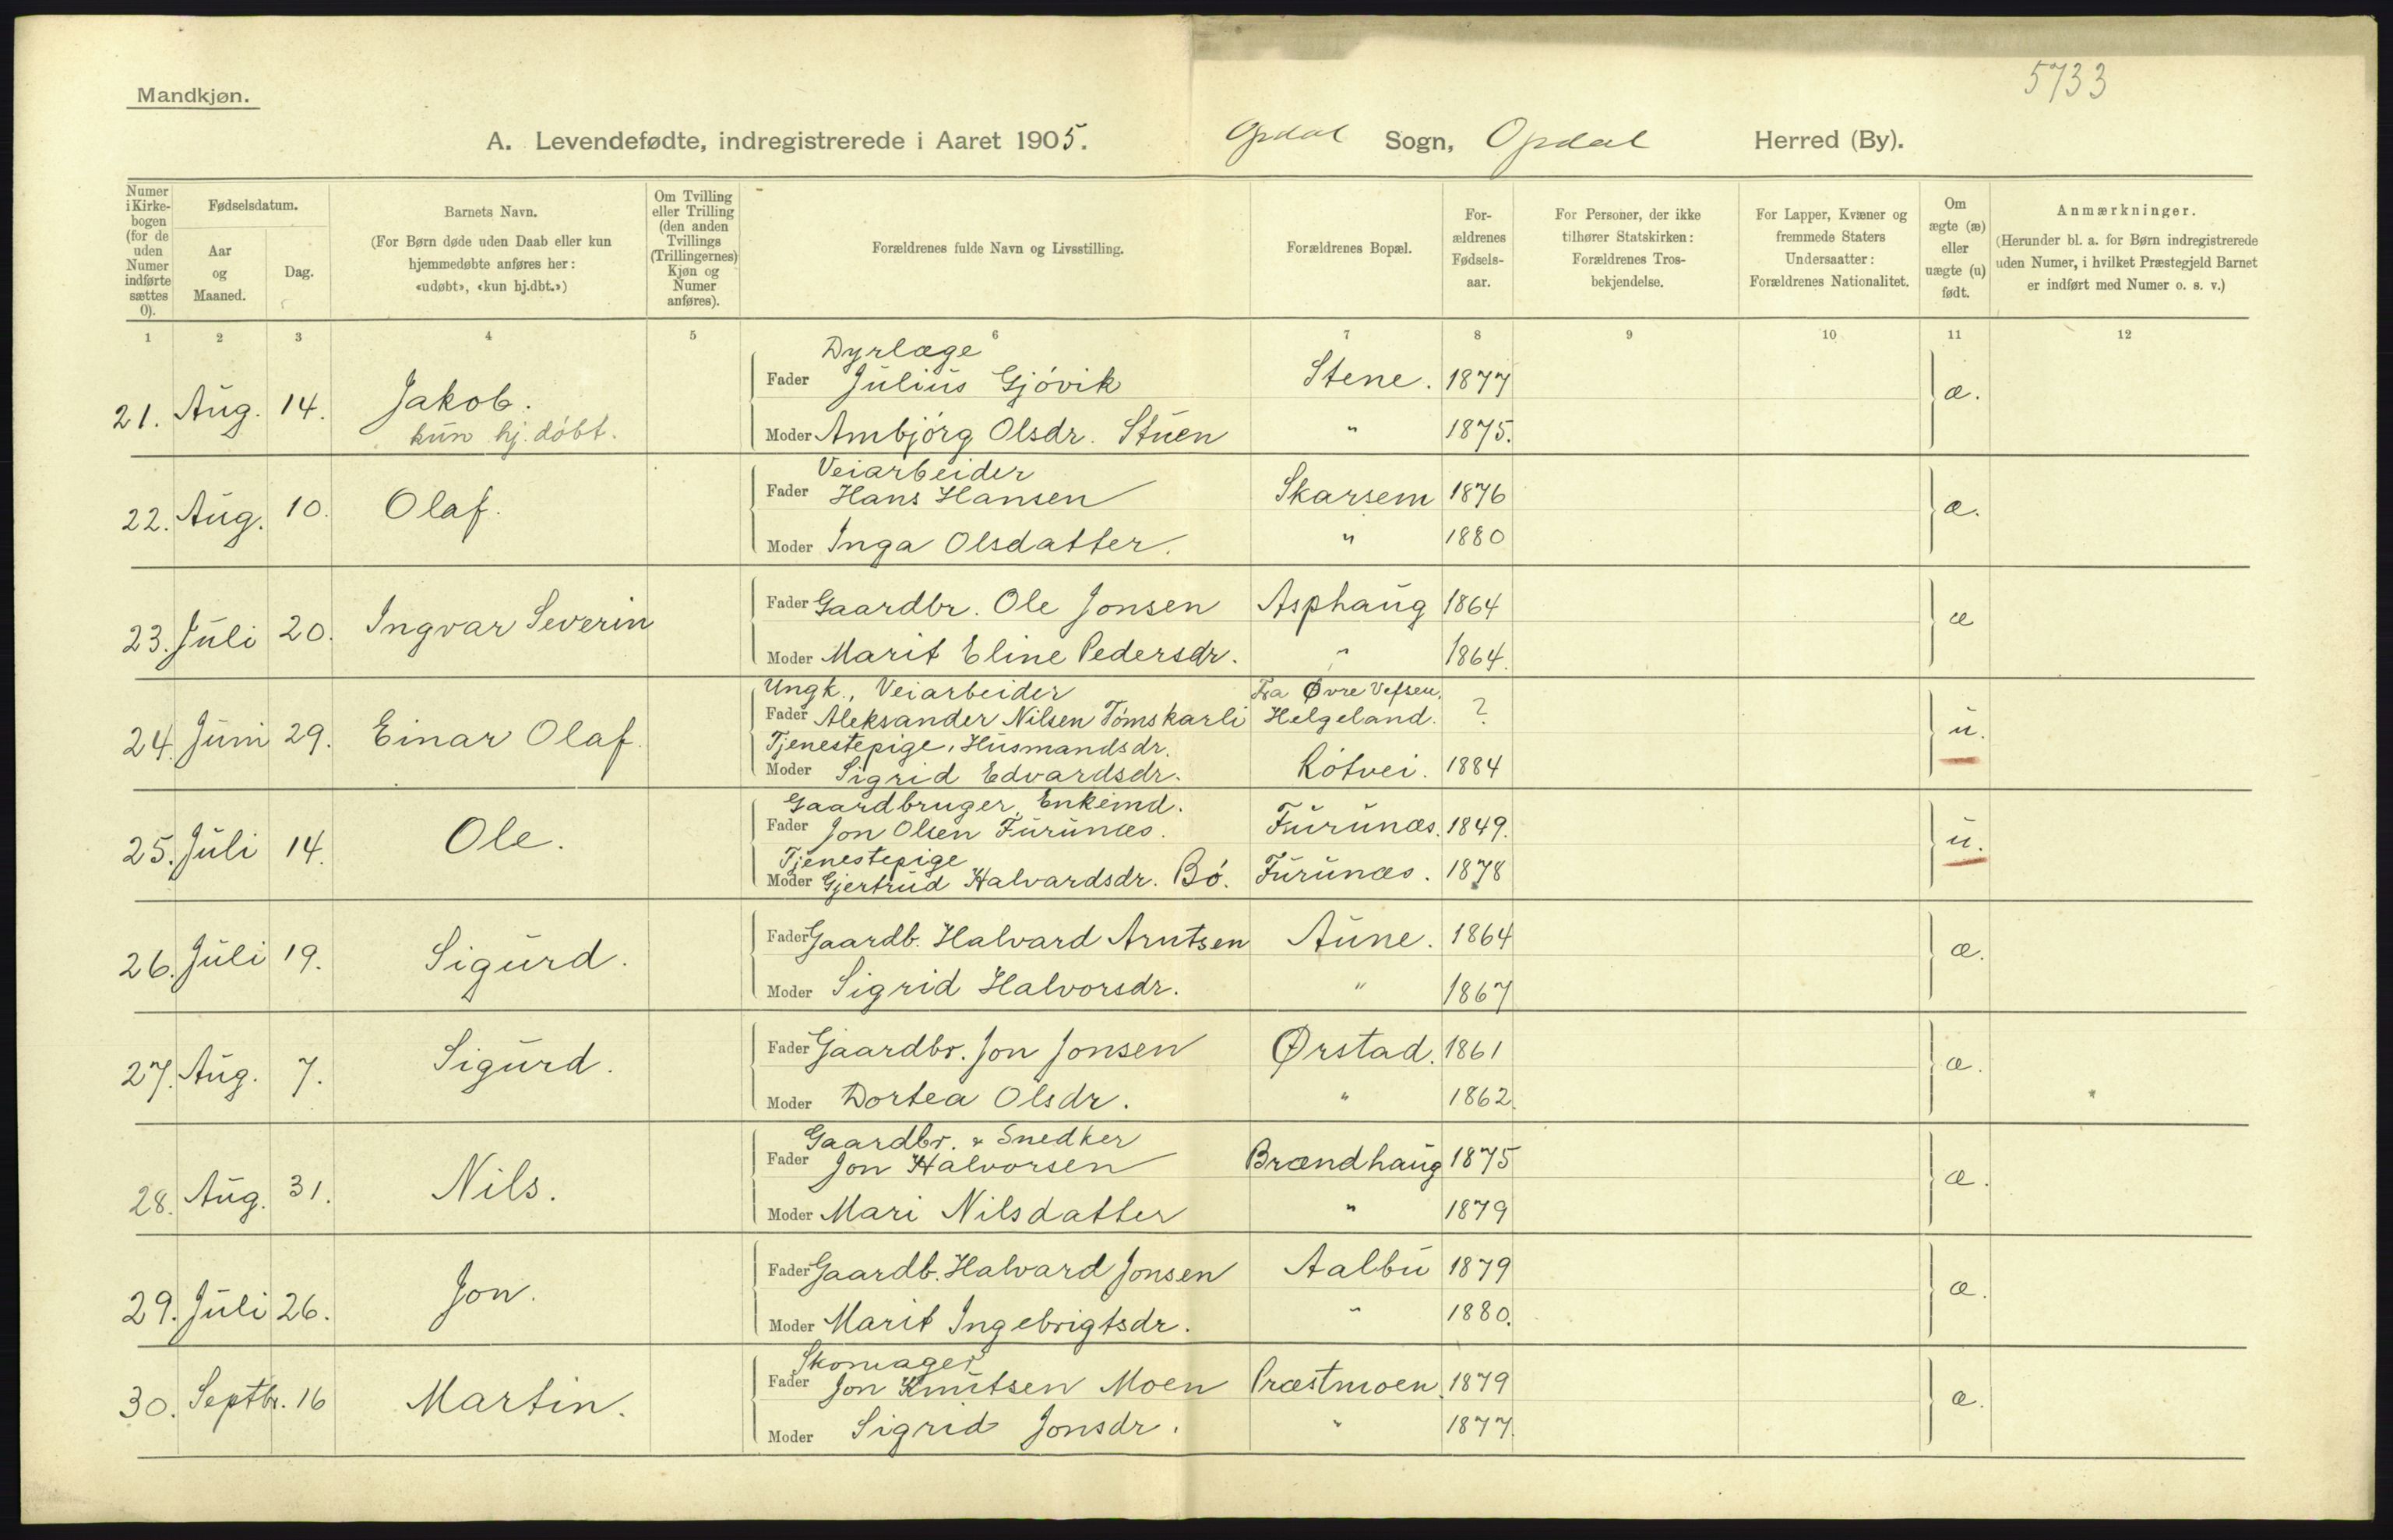 5733
Mandkjøn.
A. Levendefødte, indregistrerede i Aaret 1905. Opdal Sogn, Opdal Herred (By).
Numer i Kirkebogen (for de uden Numer indførte sættes 0).
Fødselsdatum.
Aar og Maaned.
Dag.
Barnets Navn.
(For Børn døde uden Daab eller kun hjemmedøbte anføres her: «udøbt», «kun hj.dbt.»)
Om Tvilling eller Trilling (den anden Tvillings (Trillingernes) Kjøn og Numer anføres).
Forældrenes fulde Navn og Livsstilling.
Forældrenes Bopæl.
Forældrenes Fødselsaar.
For Personer, der ikke tilhører Statskirken: Forældrenes Trosbekjendelse.
For Lapper, Kvæner og fremmede Staters Undersaatter: Forældrenes Nationalitet.
Om ægte (æ) eller uægte (u) født.
Anmærkninger.
(Herunder bl. a. for Børn indregistrerede uden Numer, i hvilket Præstegjeld Barnet er indført med Numer o. s. v.)
1 2 3 4 5 6 7 8 9 10 11 12
Dyrlæge
Fader Julius Gjóvik Stene. 1877
21. Aug. 14. Jakob. æ.
kun hj. dóbt.
Moder Ambjórg Olsdr. Stuen " 1875.
Veiarbeider
Fader Hans Hansen Skarsem 1876
22. Aug. 10. Olaf. æ.
Moder Inga Olsdatter. " 1880
Fader Gaardbr. Ole Jonsen Asphaug 1864
23. Juli 20. Ingvar Severin æ
Moder Marit Eline Pedersdr. " 1864.
Ungk., Veiarbeider Fra Øvre Vefsen,
Fader Aleksander Nilsen Tómskarli Helgeland. ?
24. Juni 29. Einar Olaf. u.
Tjenestepige, Husmandsdr.
Moder Sigrid Edvardsdr. Rótvei. 1884
Gaardbruger, Enkemd.
Fader Jon Olsen Furunæs. Furunæs. 1849.
25. Juli 14. Ole. u.
Tjenestepige
Moder Gjertrud Halvardsdr. Bó. Furunæs. 1878
Fader Gaardb. Halvard Arntsen Aune. 1864
26. Juli 19. Sigurd. æ.
Moder Sigrid Halvorsdr. " 1867
Fader Gaardbr. Jon Jonsen Ørstad. 1861
27. Aug. 7. Sigurd. æ.
Moder Dortea Olsdr. " 1862.
Gaardbr. & Snedker
Fader Jon Halvorsen Brændhaug 1875
28. Aug. 31. Nils. æ.
Moder Mari Nilsdatter " 1879
Fader Gaardb. Halvard Jonsen Aalbu 1879
29. Juli 26. Jon. æ.
Moder Marit Ingebrigtsdr. " 1880.
Skomager
Fader Jon Knutsen Moen Præstmoen. 1879
30. Septbr. 16 Martin. æ.
Moder Sigrid Jonsdr. " 1877.